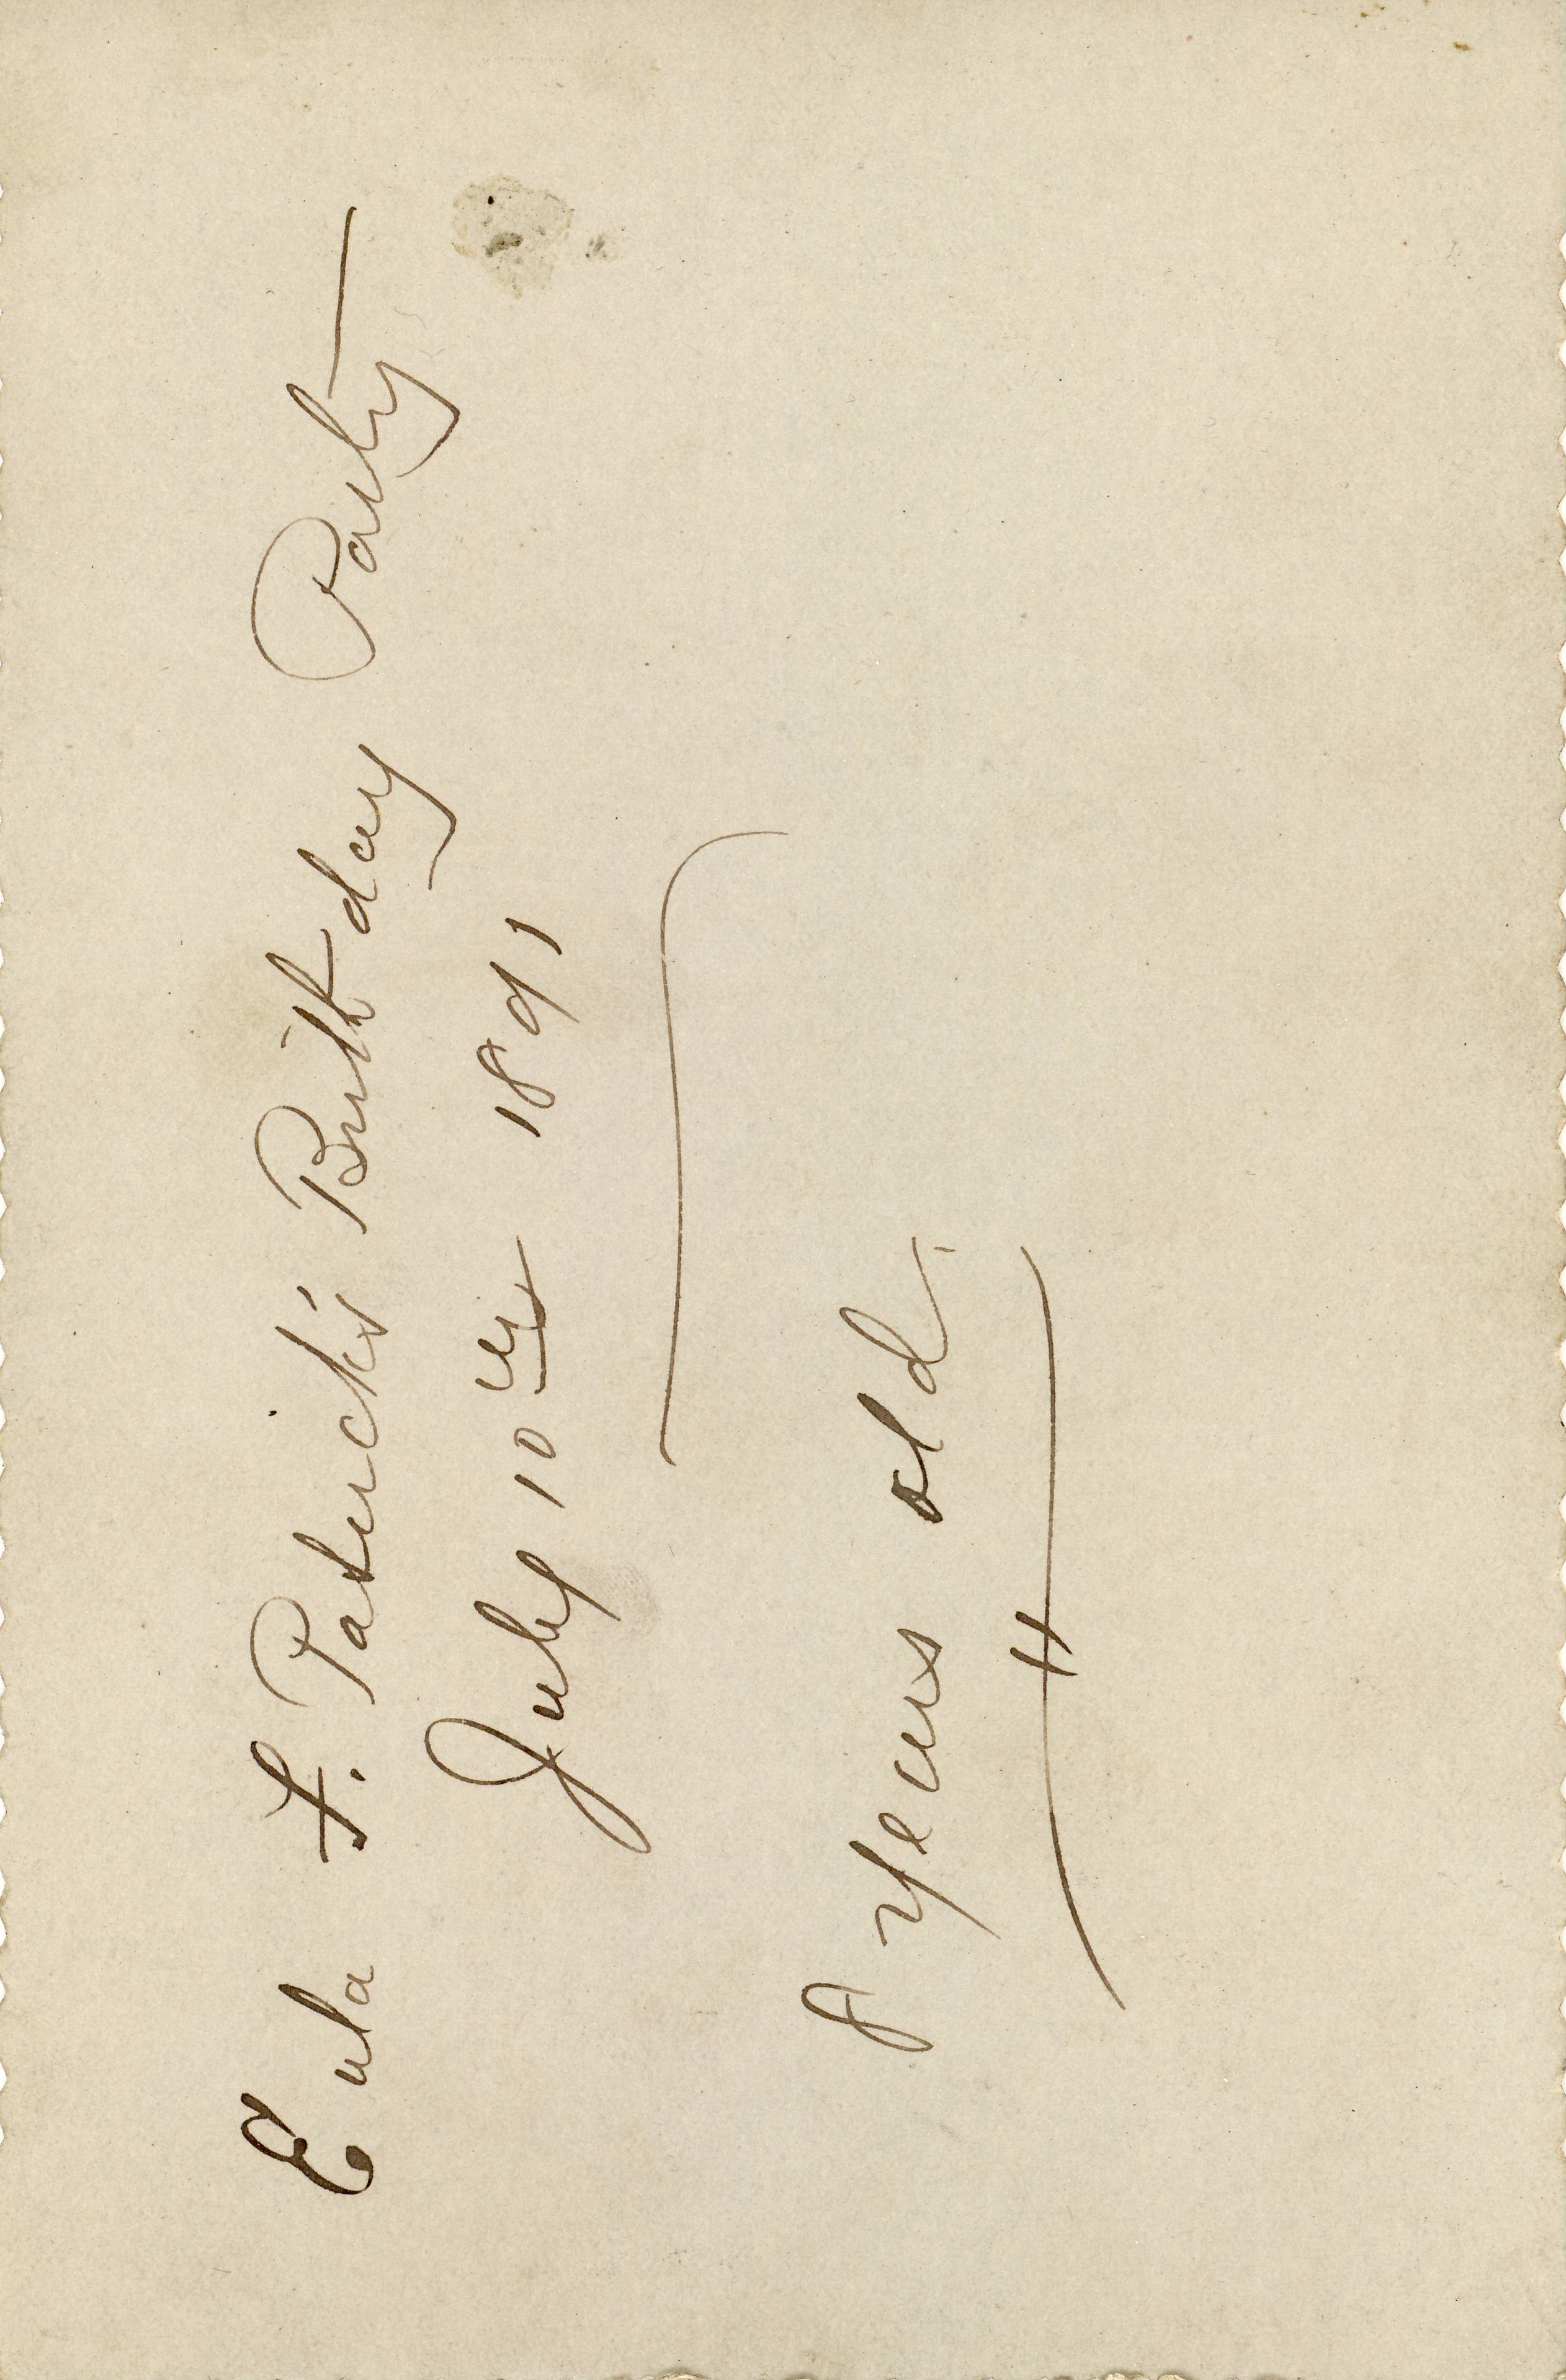 Eula F. Patrick's Birthday Party
July 10th 1891
8 years old.